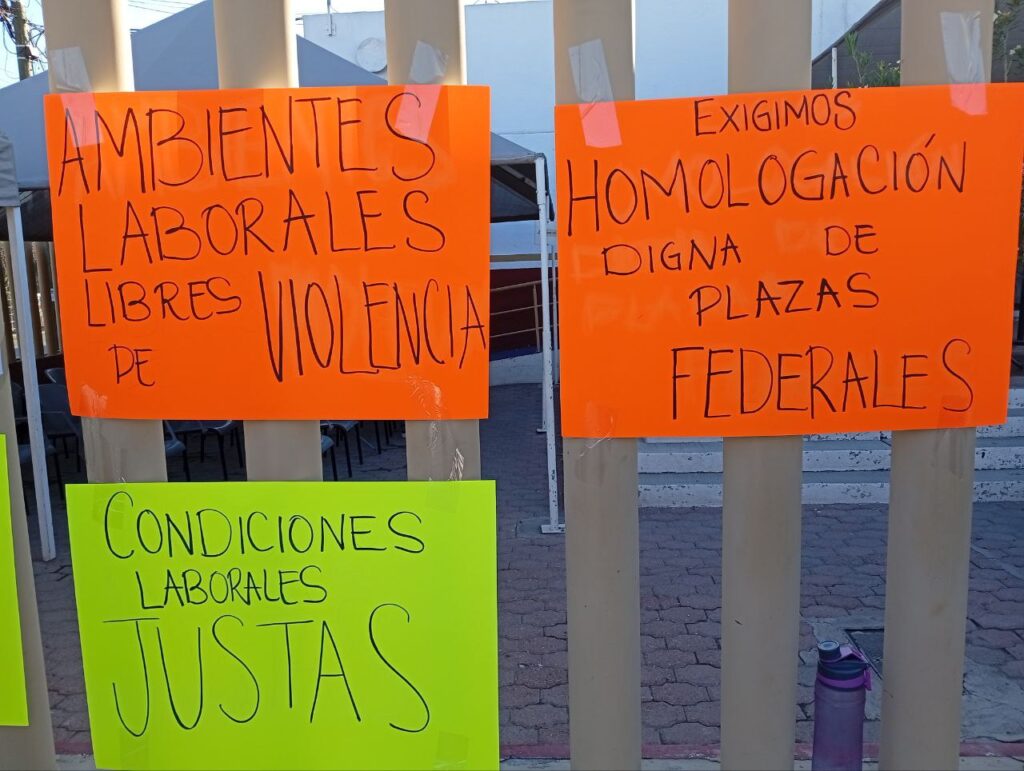 AMBIENTES
LABORALES
LIBRES
DE VIOLENCIA
EXIGIMOS
HOMOLOGACIÓN
DIGNA DE
PLAZAS
FEDERALES
CONDICIONES
LABORALES
JUSTAS